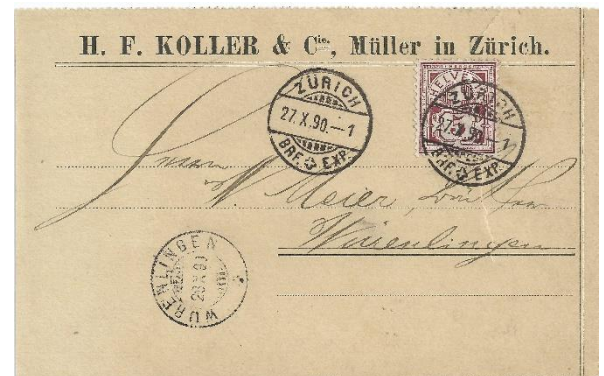 H. F. KOLLER & Cie., Müller in Zürich.
ZÜRICH
27.X.90.–1
BRF. EXP.
HELVETIA
5
ZÜRICH
27.X.90.–1
BRF. EXP.
Herrn
Meier,
Würenlingen
WÜRENLINGEN
28 X 90